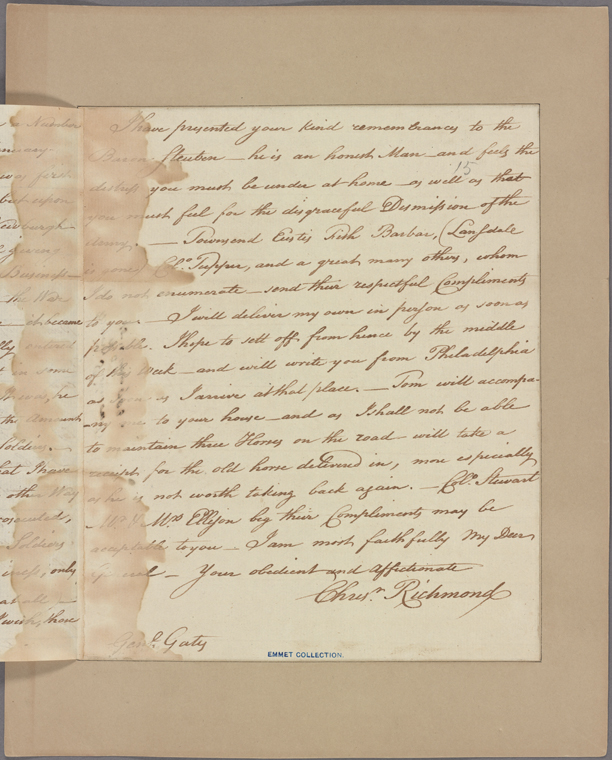 Number
I have presented your kind remembrances to the
Baron Steuben — he is an honest Man — and feels the
15
distress you must be under at home — as well as that
you must feel for the disgraceful Dismission of the
Army. — Townsend Eustis Fish Barbar, (Langsdale
is come) Colo. Tupper, and a great many others, whom
I do not enumerate — send their respectful Compliments
to you — I will deliver my own in person as soon as
possible. I hope to sett off from hence by the middle
of this week — and will write you from Philadelphia
as soon as I arrive at that place. — Tom will accompa-
ny me to your house — and as I shall not be able
to maintain three Horses on the road — will take a
receipt for the old horse delivered in, more especially
as he is not worth taking back again. — Colo. Stewart
Mr. & Mrs. Ellison beg their Compliments may be
acceptable to you — I am most faithfully My Dear
General — Your obedient and affectionate
Chrisr. Richmond
Genl. Gates
EMMET COLLECTION.
best upon
Newburgh
giving
Business —
the War
it became
entered
in some
the amount
that I have
other Way
prosecuted,
Soldiers
only
at all —
wish, those